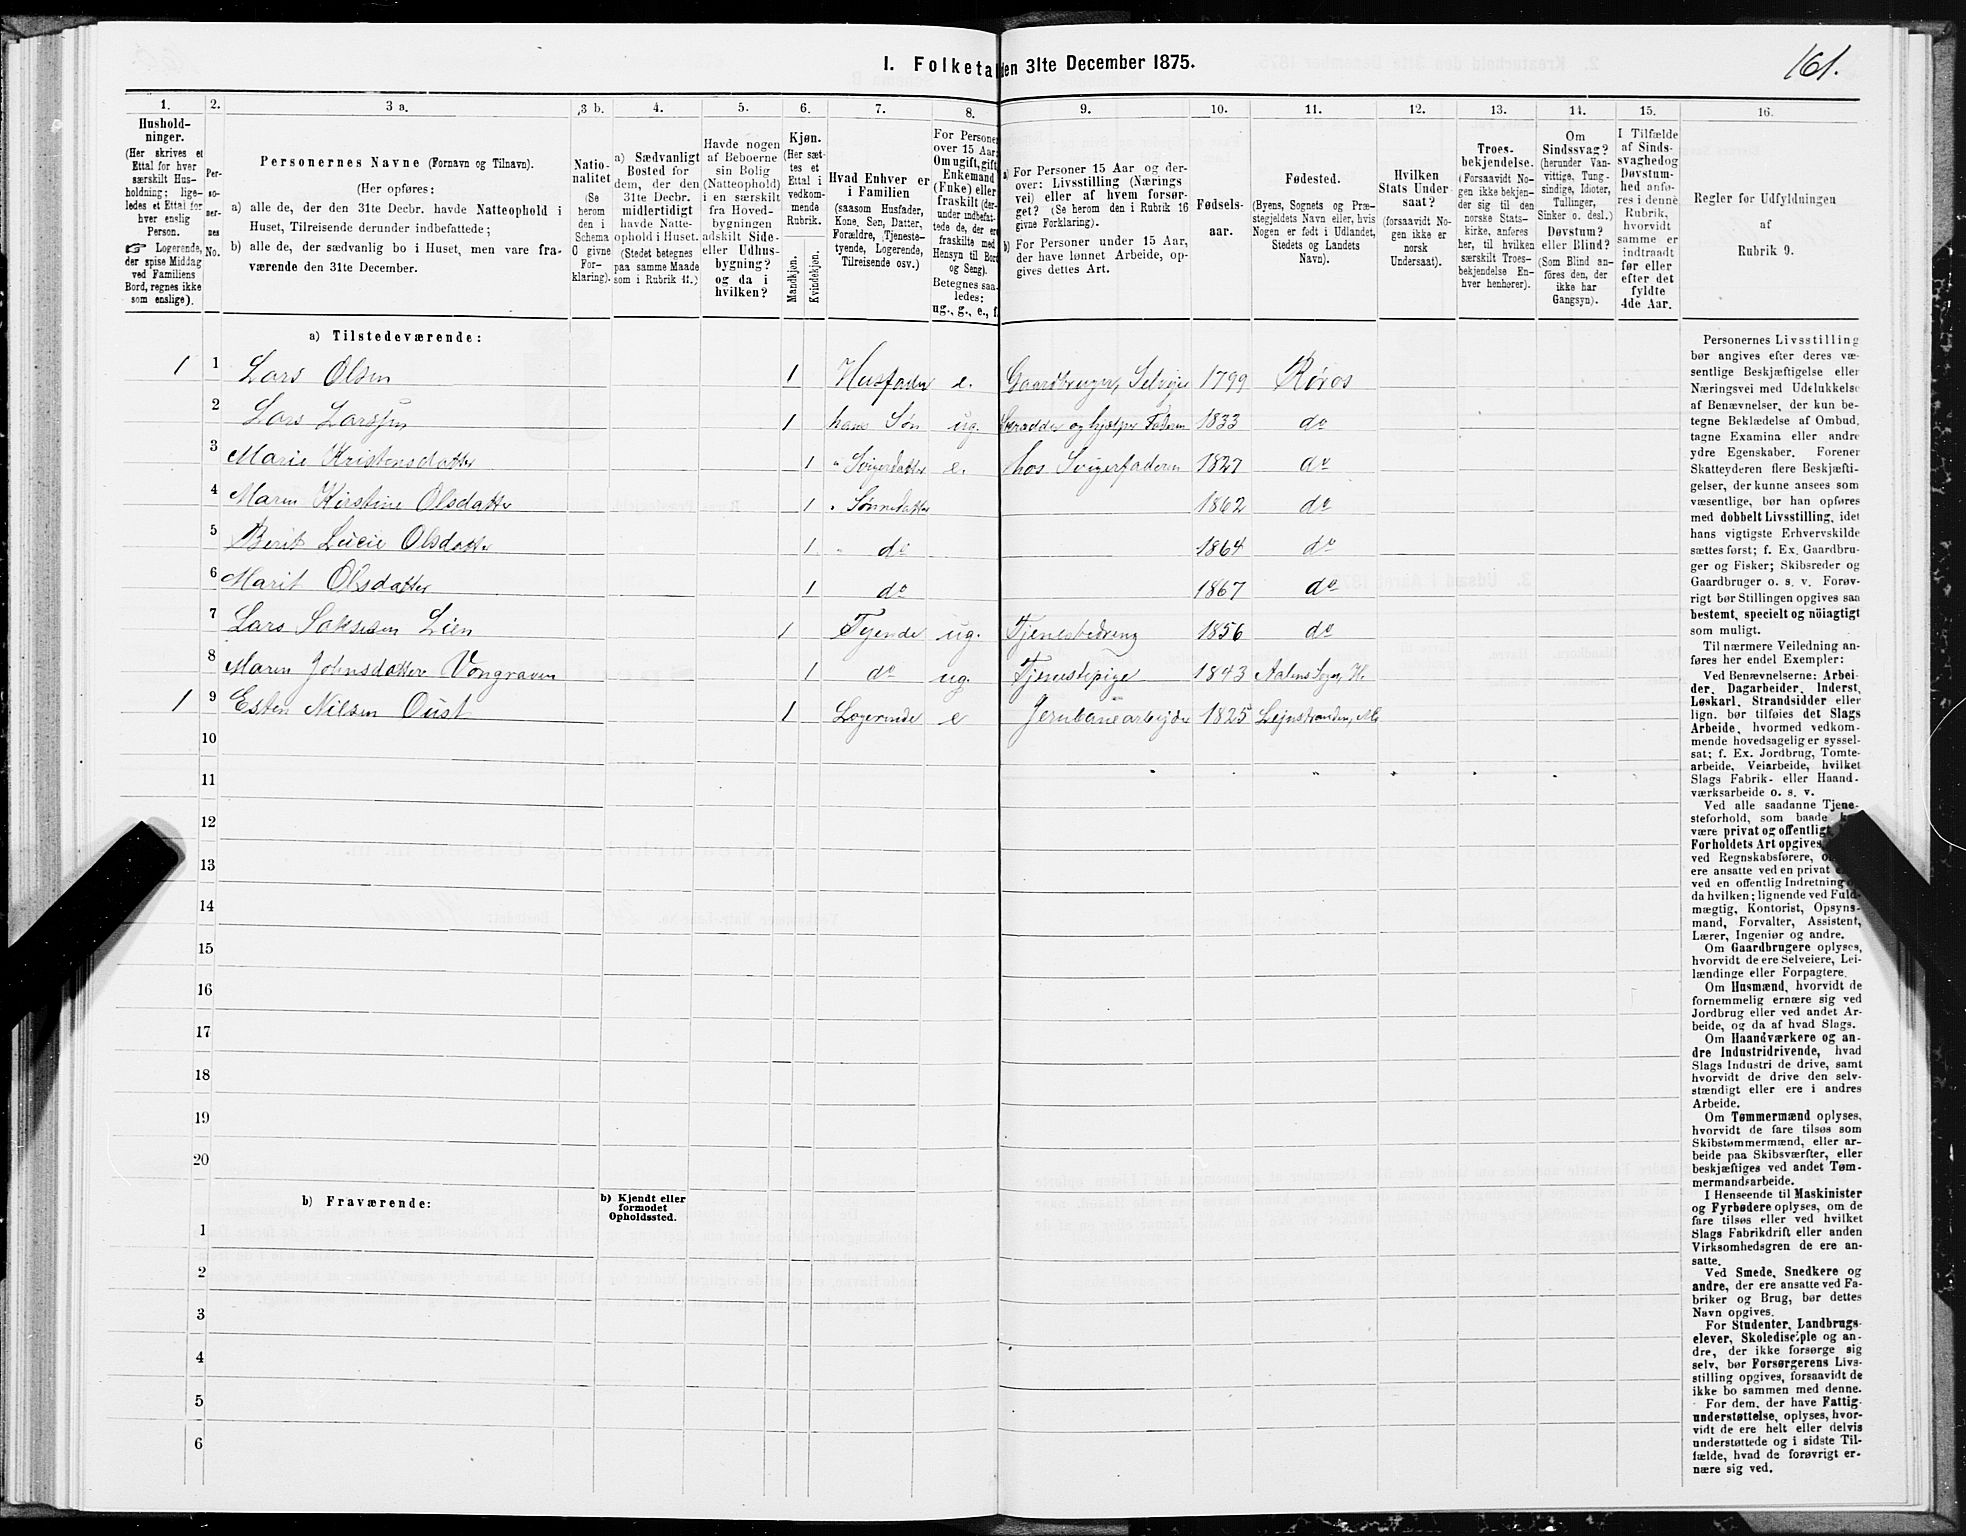 161.
I. Folketal den 31te December 1875.
1.
Hushold-
ninger.
(Her skrives et
Ettal for hver
særskilt Hus-
holdning; lige-
ledes et Ettal for
hver enslig
Person.
☞ Logerende,
der spise Middag
ved Familiens
Bord, regnes ikke
som enslige).
2.
Per-
so-
ner-
nes
No.
3 a.
Personernes Navne (Fornavn og Tilnavn).
(Her opføres:
a) alle de, der den 31te Decbr. havde Natteophold i
Huset, Tilreisende derunder indbefattede;
b) alle de, der sædvanlig bo i Huset, men vare fra-
værende den 31te December.
3 b.
Natio-
nalitet
(Se
herom
den i
Schema
O givne
For-
klaring).
4.
a) Sædvanligt
Bosted for
dem, der den
31te Decbr.
midlertidigt
havde Natte-
ophold i Huset.
(Stedet betegnes
paa samme Maade
som i Rubrik 11.)
5.
Havde nogen
af Beboerne
sin Bolig
(Natteophold)
i en særskilt
fra Hoved-
bygningen
adskilt Side-
eller Udhus-
bygning?
og da i
hvilken?
6.
Kjøn.
(Her sæt-
tes et
Ettal i
vedkom-
mende
Rubrik.
Mandkjøn.
Kvindekjøn.
7.
Hvad Enhver er
i Familien
(saasom Husfader,
Kone, Søn, Datter,
Forældre, Tjeneste-
tyende, Logerende,
Tilreisende osv.)
8.
For Personer
over 15 Aar:
Om ugift, gift,
Enkemand
(Enke) eller
fraskilt (der-
under indbefat-
tede de, der ere
fraskilte med
Hensyn til Bord
og Seng).
Betegnes saa-
ledes:
ug., g., e., f.
9.
a) For Personer 15 Aar og der-
over: Livsstilling (Nærings
vei) eller af hvem forsør-
get? (Se herom den i Rubrik 16
givne Forklaring).
b) For Personer under 15 Aar,
der have lønnet Arbeide, op-
gives dettes Art.
10.
Fødsels-
aar.
11.
Fødested.
(Byens, Sognets og Præ-
stegjeldets Navn eller, hvis
Nogen er født i Udlandet,
Stedets og Landets
Navn).
12.
Hvilken
Stats Under-
saat?
(forsaavidt No-
gen ikke er
norsk
Undersaat).
13.
Troes-
bekjendelse.
(Forsaavidt No-
gen ikke bekjen-
der sig til den
norske Stats-
kirke, anføres
her, til hvilken
særskilt Troes-
bekjendelse En-
hver henhører).
14.
Om
Sindssvag?
(herunder Van-
vittige, Tung-
sindige, Idioter,
Tullinger,
Sinker o. desl.)
Døvstum?
eller Blind?
(Som Blind an-
føres den, der
ikke har
Gangsyn).
15.
I Tilfælde
af Sinds-
svaghedog
Døvstum-
hed anfø-
res i denne
Rubrik,
hvorvidt
samme er
indtraadt
før eller
efter det
fyldte
4de Aar.
16.
Regler for Udfyldningen
af
Rubrik 9.
a) Tilstedeværende:
1 1 Lars Olsen 1 Husfader e. Gaardbruger, Selveier 1799 Røros
2 Lars Larssen 1 hans Søn ug. Skrædder og hjælper Faderen 1833 do
3 Marie Kristensdatter 1 " Svigerdatter e. hos Svigerfaderen 1827 do
4 Maren Kirstine Olsdatter 1 " Sønnedatter 1862 do
5 Berit Lucie Olsdatter 1 " do 1864 do
6 Marit Olsdatter 1 do 1867 do
7 Lars Saksesen Lien 1 Tyende ug. Tjenestedreng 1856 do
8 Maren Johnsdatter Vongraven 1 do ug. Tjenestepige 1843 Aalens Sogn, H.
1 9 Esten Nilsen Oust 1 Logerende e Jernbanearbejder 1825 Lejnstranden, M.
10
11
12
13
14
15
16
17
18
19
20
b) Fraværende:
b) Kjendt eller
formodet
Opholdssted.
1
2
3
4
5
6
Personernes Livsstilling
bør angives efter deres væ-
sentlige Beskjæftigelse eller
Næringsvei med Udelukkelse
af Benævnelser, der kun be-
tegne Beklædelse af Ombud,
tagne Examina eller andre
ydre Egenskaber. Forener
Skatteyderen flere Beskjæfti-
gelser, der kunne ansees som
væsentlige, bør han opføres
med dobbelt Livsstilling, idet
hans vigtigste Erhvervskilde
sættes først; f. Ex. Gaardbru-
ger og Fisker; Skibsreder og
Gaardbruger o. s. v. Forøv-
rigt bør Stillingen opgives saa
bestemt, specielt og nöiagtigt
som muligt.
Til nærmere Veiledning an-
føres her endel Exempler:
Ved Benævnelserne: Arbei-
der, Dagarbeider, Inderst,
Løskarl, Strandsidder eller
lign. bør tilføies det Slags
Arbeide, hvormed vedkom-
mende hovedsagelig er syssel-
sat; f. Ex. Jordbrug, Tomte-
arbeide, Veiarbeide, hvilket
Slags Fabrik- eller Haand-
værksarbeide o. s. v.
Ved alle saadanne Tjene-
steforhold, som baade
være privat og offentligt,
Forholdets Art opgives,
ved Regnskabsførere,
ere ansatte ved en privat
ved en offentlig Indretning
da hvilken; lignende ved Fuld-
mægtig, Kontorist, Opsyns-
mand, Forvalter, Assistent,
Lærer, Ingeniør og andre.
Om Gaardbrugere oplyses,
hvorvidt de ere Selveiere, Lei-
lændinge eller Forpagtere.
Om Husmænd, hvorvidt de
fornemmelig ernære sig ved
Jordbrug eller ved andet Ar-
beide, og da af hvad Slags.
Om Haandværkere og an-
dre Industridrivende, hvad
Slags Industri de drive, samt
hvorvidt de drive den selv-
stændigt eller ere i andres
Arbeide.
Om Tømmermænd oplyses,
hvorvidt de fare tilsøs som
Skibstømmermænd, eller ar-
beide paa Skibsværfter, eller
beskjæftiges ved andet Tøm-
mermandsarbeide.
I Henseende til Maskinister
og Fyrbødere oplyses, om de
fare tilsøs eller ved hvilket
Slags Fabrikdrift eller anden
Virksomhedsgren de ere an-
satte.
Ved Smede, Snedkere og
andre, der ere ansatte ved Fa-
briker og Brug, bør dettes
Navn opgives.
For Studenter, Landbrugs-
elever, Skoledisciple og an-
dre, der ikke forsørge sig
selv, bør Forsørgerens Livs-
stilling opgives, forsaavidt de
ikke bo sammen med denne.
For dem, der have Fattig-
understøttelse, oplyses, hvor-
vidt de ere helt eller delvis
understøttede og i sidste Til-
fælde, hvad de forøvrigt er-
nære sig ved.